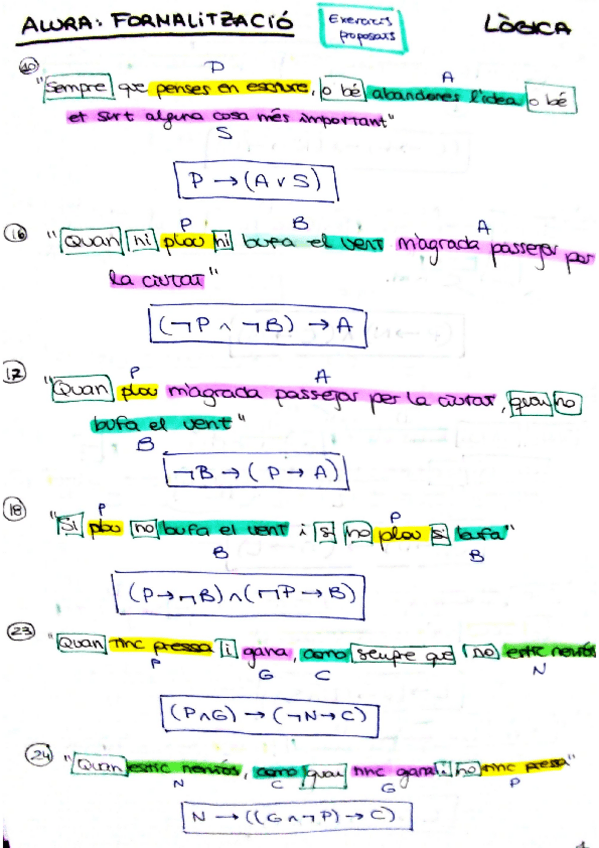 AULRA: FORMALITZACIÓ
Exercicis
proposats
LÒGICA
10
P
A
"Sempre que penses en escriure, o bé abandones l'idea o bé
et surt alguna cosa més important"
S
P → (A ∨ S)
16
P
B
A
"Quan ni plou ni bufa el vent m'agrada passejar per
la ciutat"
(¬P ∧ ¬B) → A
17
P
A
"Quan plou m'agrada passejar per la ciutat, quan no
bufa el vent"
B
¬B → (P → A)
18
P
P
"Si plou no bufa el vent i si no plou si bufa"
B
B
(P → ¬B) ∧ (¬P → B)
23
"Quan tinc pressa i gana, como sempre que no estic nerviós
P
G
C
N
(P ∧ G) → (¬N → C)
24
"Quan estic nerviós, como quan tinc gana i no tinc pressa"
N
C
G
P
N → ((G ∧ ¬P) → C)